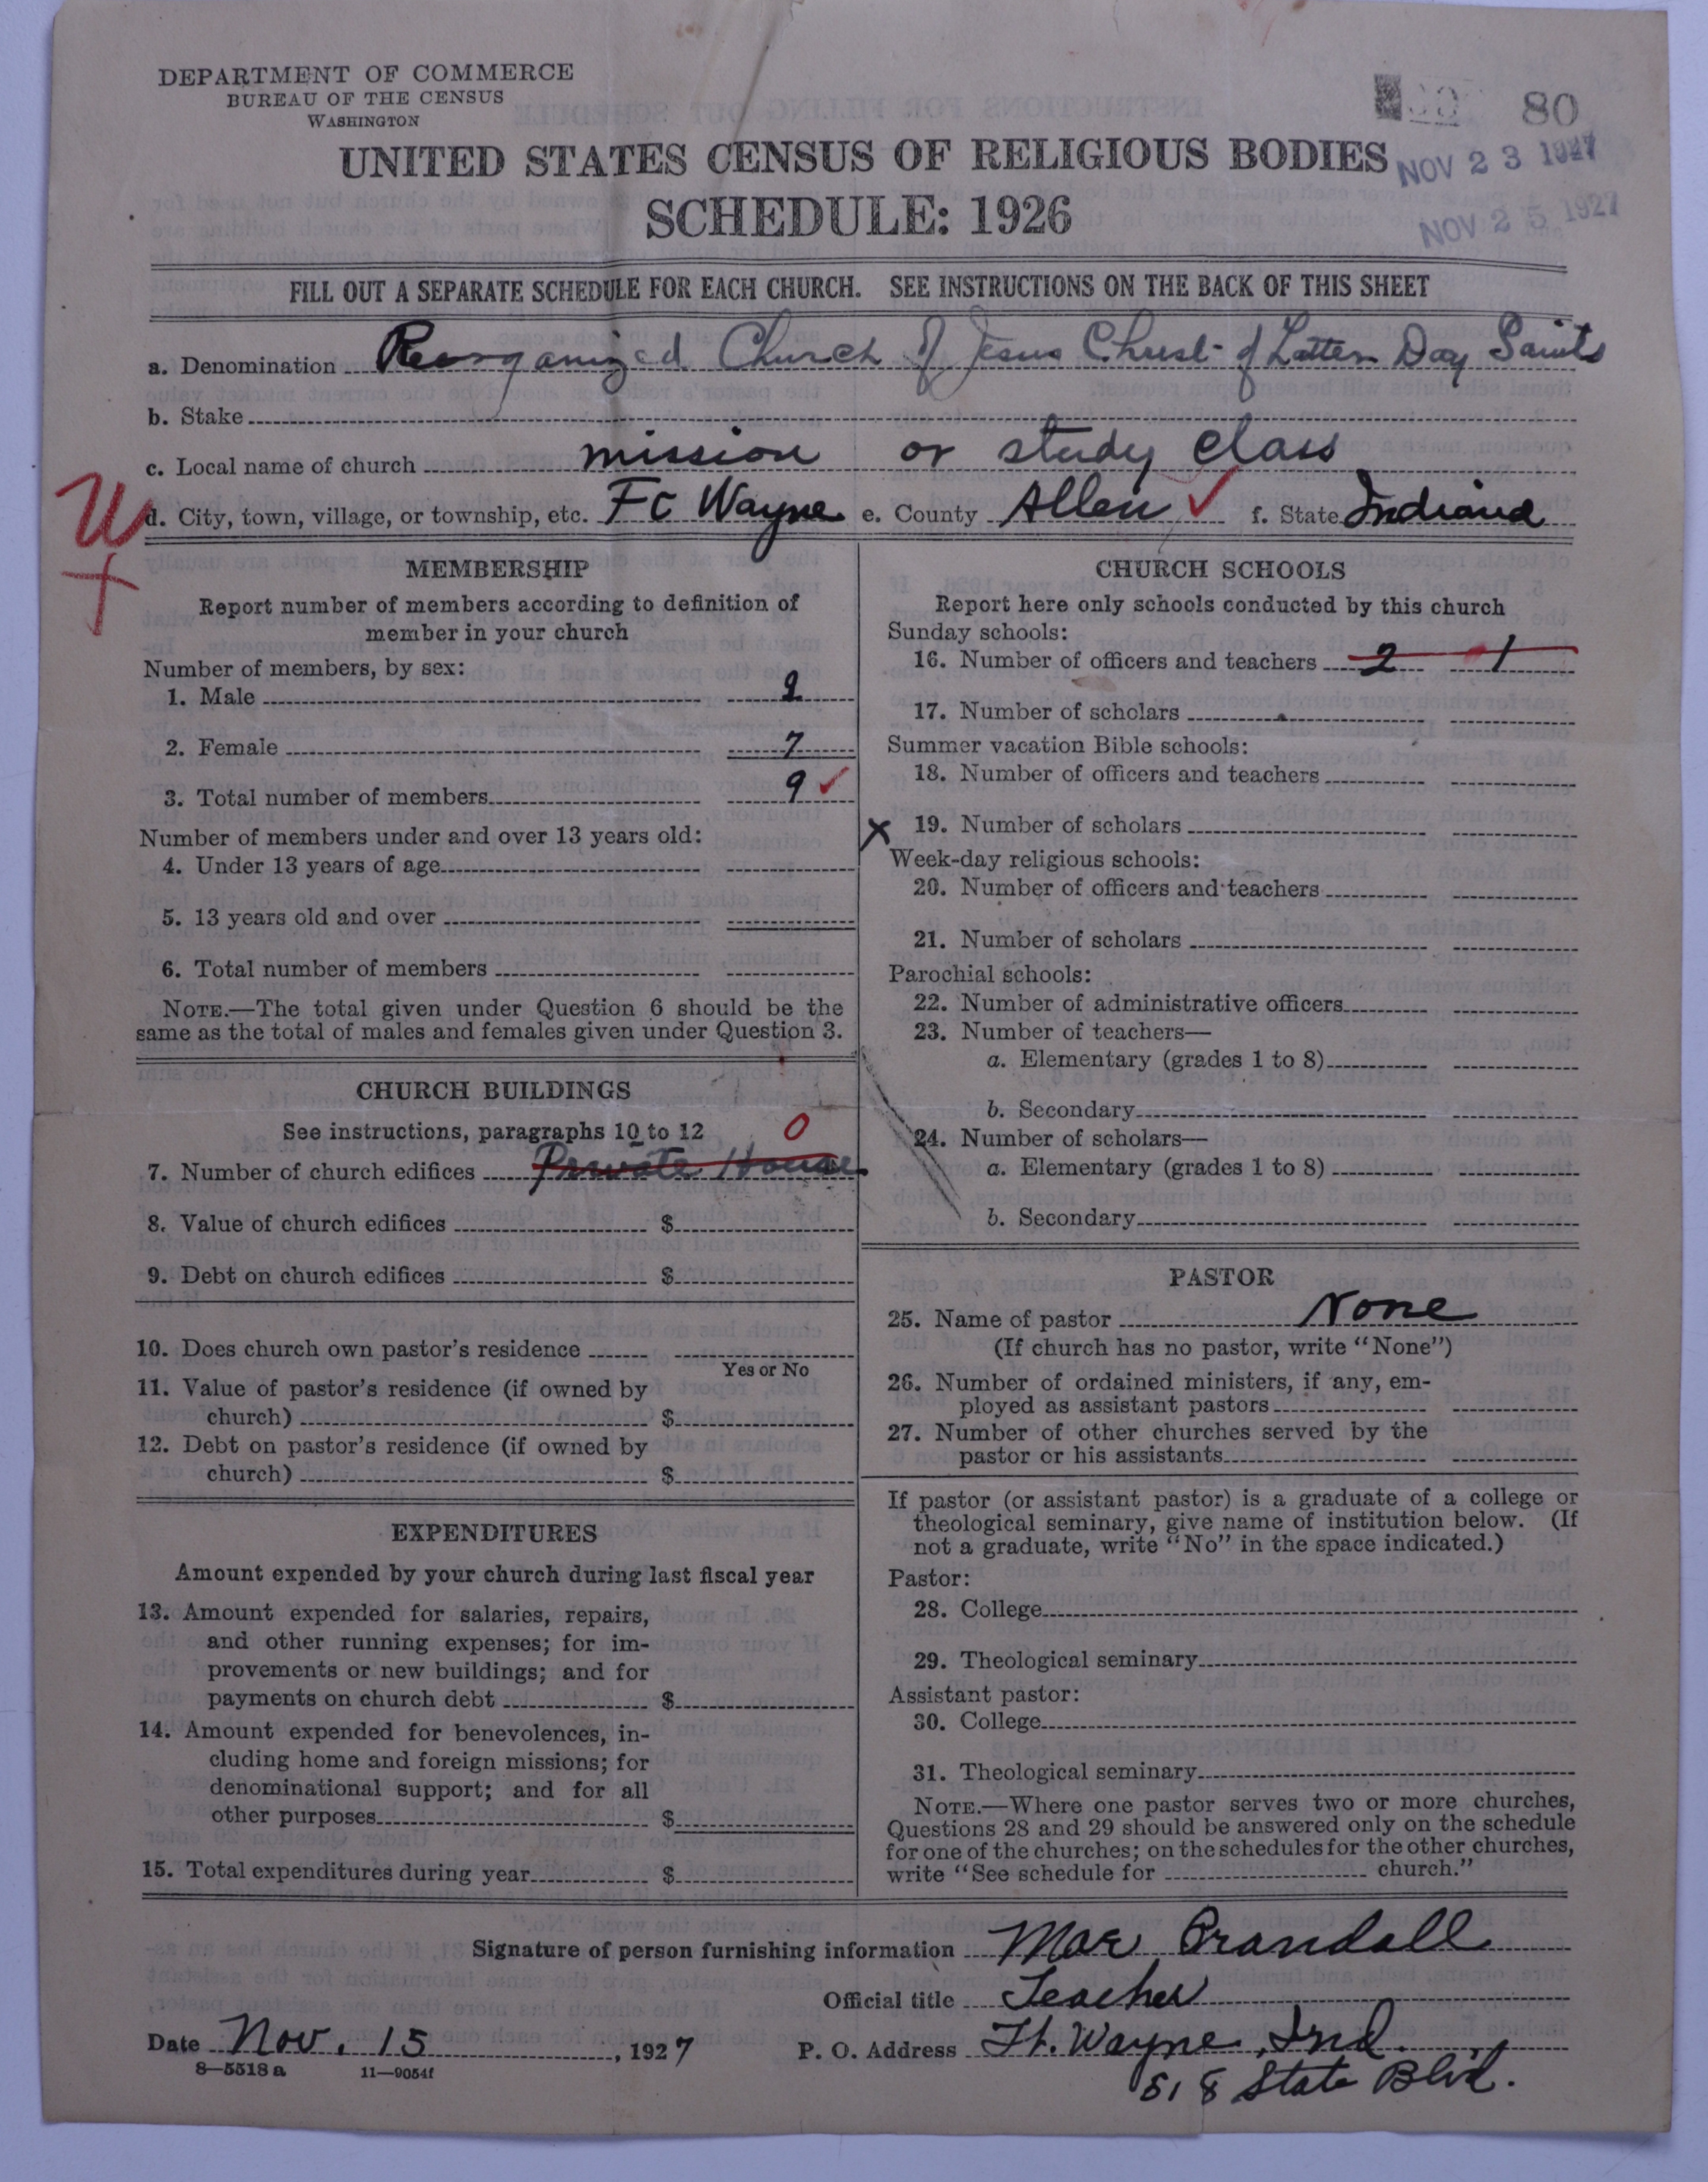 DEPARTMENT OF COMMERCE
BUREAU OF THE CENSUS
WASHINGTON
80
UNITED STATES CENSUS OF RELIGIOUS BODIES
NOV 23 1927
SCHEDULE: 1926
NOV 25 1927
FILL OUT A SEPARATE SCHEDULE FOR EACH CHURCH. SEE INSTRUCTIONS ON THE BACK OF THIS SHEET
a. Denomination Reorganized Church of Jesus Christ of Latter Day Saints
b. Stake
c. Local name of church mission or study class
d. City, town, village, or township, etc. Ft Wayne e. County Allen ✓ f. State Indiana
W
X
MEMBERSHIP
Report number of members according to definition of
member in your church
Number of members, by sex:
1. Male 2
2. Female 7
3. Total number of members 9 ✓
Number of members under and over 13 years old:
4. Under 13 years of age
5. 13 years old and over
6. Total number of members
NOTE.—The total given under Question 6 should be the
same as the total of males and females given under Question 3.
CHURCH BUILDINGS
See instructions, paragraphs 10 to 12
0
7. Number of church edifices Private House
8. Value of church edifices $
9. Debt on church edifices $
10. Does church own pastor's residence
Yes or No
11. Value of pastor's residence (if owned by
church) $
12. Debt on pastor's residence (if owned by
church) $
EXPENDITURES
Amount expended by your church during last fiscal year
13. Amount expended for salaries, repairs,
and other running expenses; for im-
provements or new buildings; and for
payments on church debt $
14. Amount expended for benevolences, in-
cluding home and foreign missions; for
denominational support; and for all
other purposes $
15. Total expenditures during year $
CHURCH SCHOOLS
Report here only schools conducted by this church
Sunday schools:
16. Number of officers and teachers 2 1
17. Number of scholars
Summer vacation Bible schools:
18. Number of officers and teachers
X 19. Number of scholars
Week-day religious schools:
20. Number of officers and teachers
21. Number of scholars
Parochial schools:
22. Number of administrative officers
23. Number of teachers—
a. Elementary (grades 1 to 8)
b. Secondary
24. Number of scholars—
a. Elementary (grades 1 to 8)
b. Secondary
PASTOR
25. Name of pastor None
(If church has no pastor, write "None")
26. Number of ordained ministers, if any, em-
ployed as assistant pastors
27. Number of other churches served by the
pastor or his assistants
If pastor (or assistant pastor) is a graduate of a college or
theological seminary, give name of institution below. (If
not a graduate, write "No" in the space indicated.)
Pastor:
28. College
29. Theological seminary
Assistant pastor:
30. College
31. Theological seminary
NOTE.—Where one pastor serves two or more churches,
Questions 28 and 29 should be answered only on the schedule
for one of the churches; on the schedules for the other churches,
write "See schedule for church."
Signature of person furnishing information Mae Crandall
Official title Teacher
Date Nov. 15, 1927 P. O. Address Ft. Wayne, Ind.
8—5518 a 11—9054f
518 State Blvd.